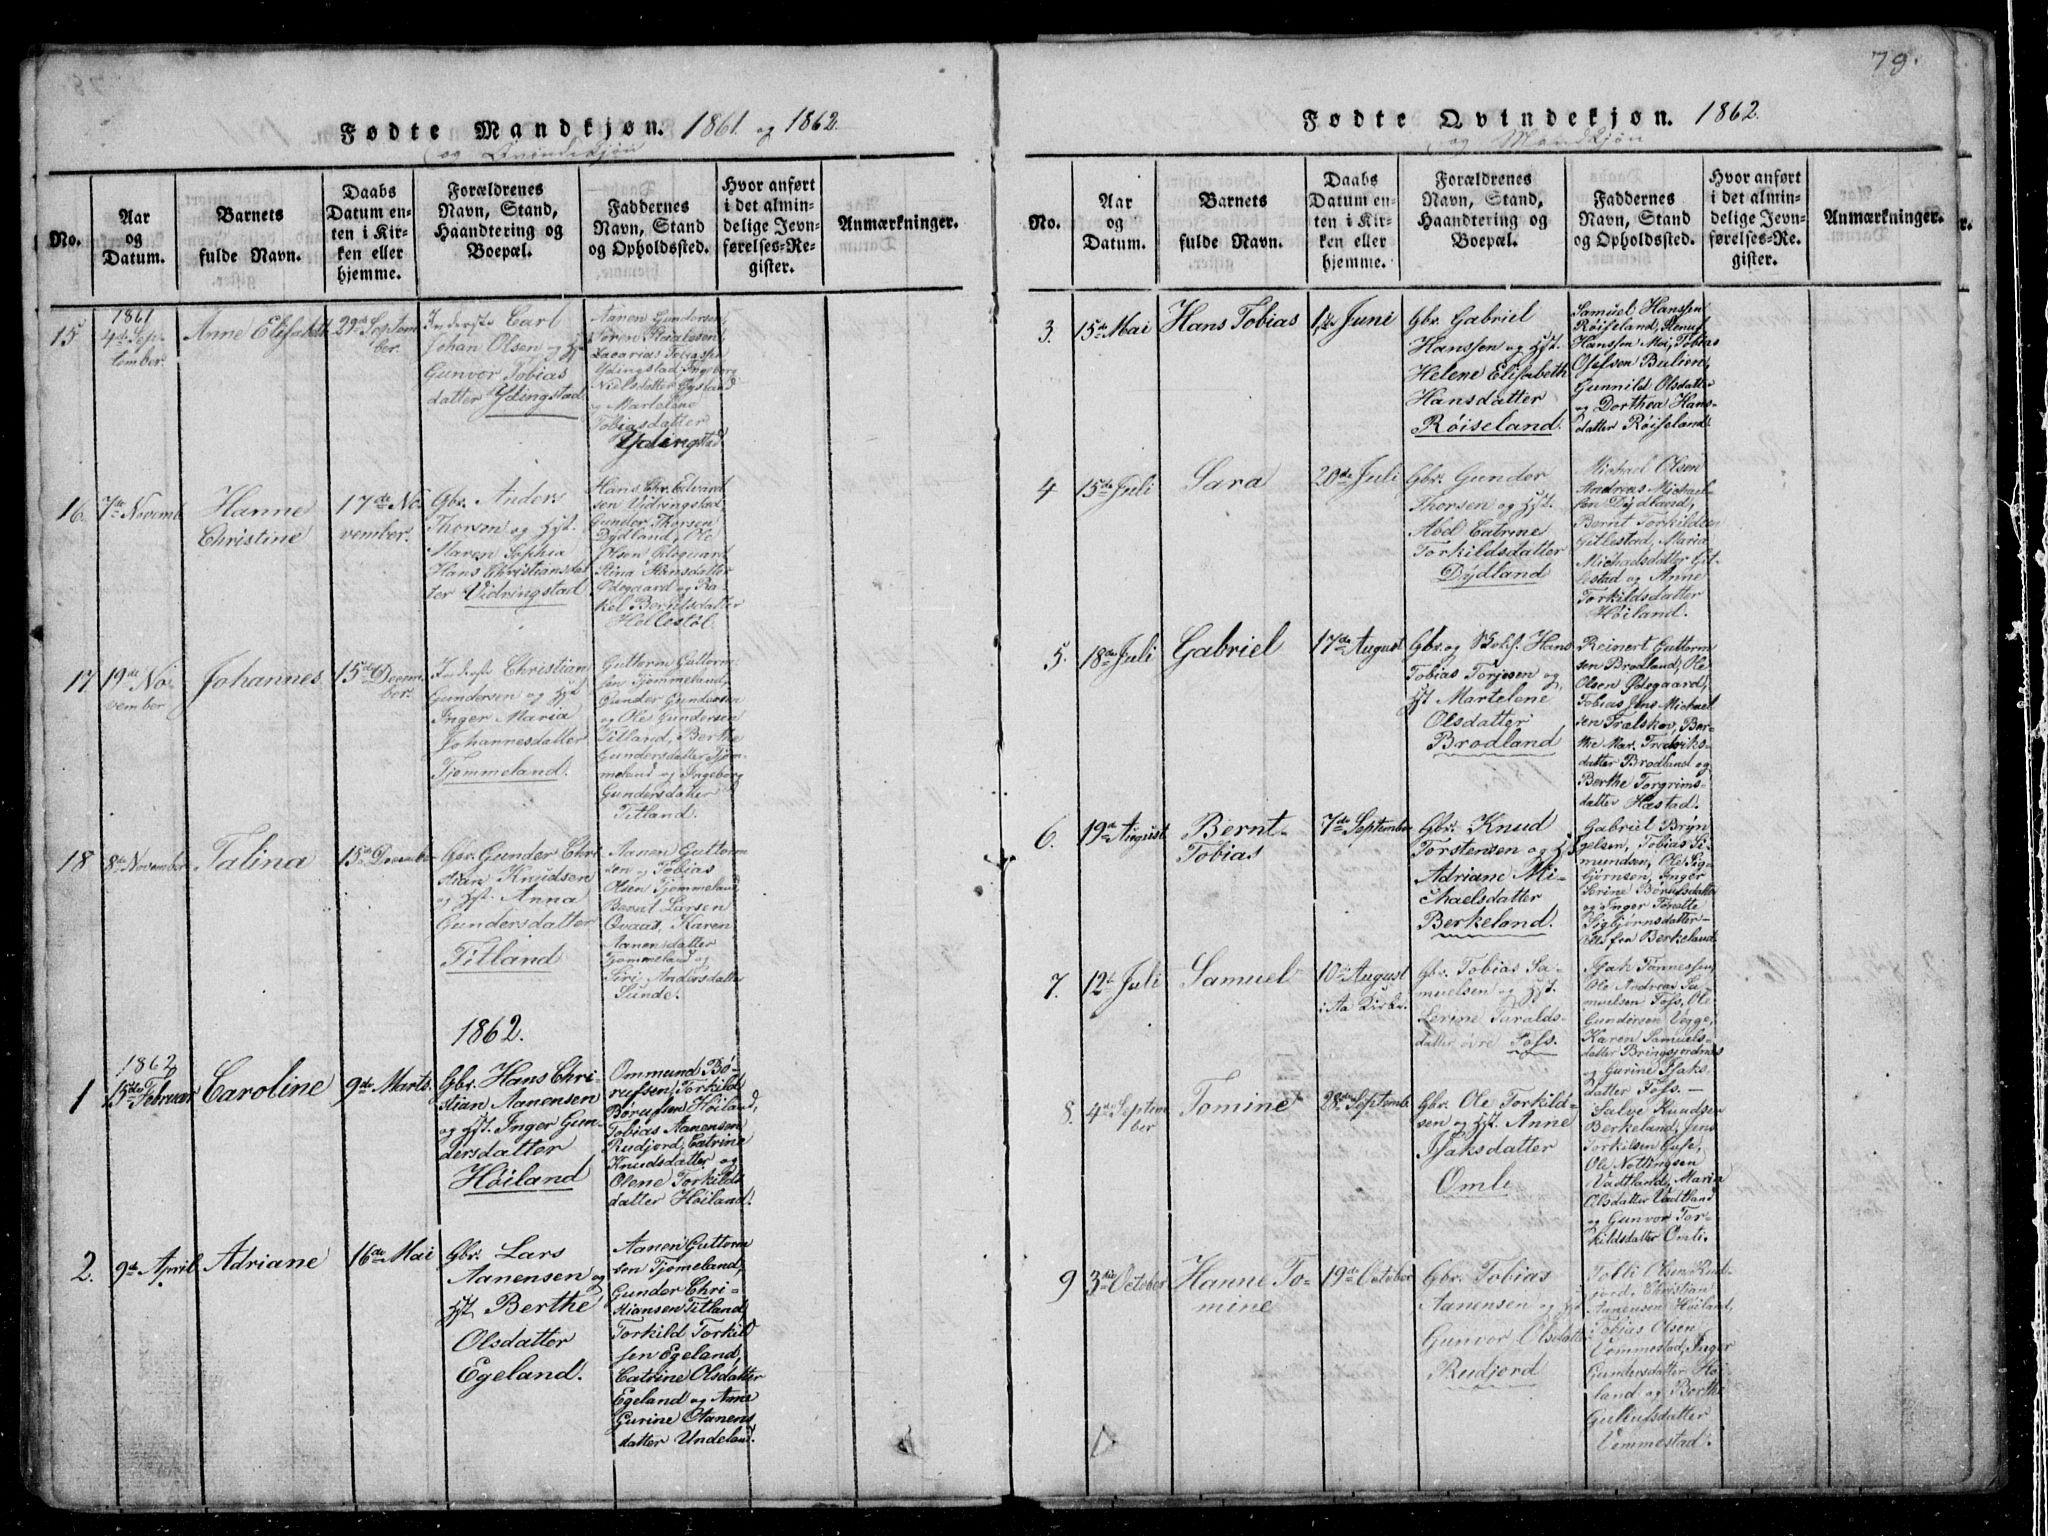 Fødte Mandkjøn. 1861. og 1862
og Qvindekjøn
No.
Aar og Datum.
Barnets fulde Navn.
Daabs Datum enten i Kirken eller hjemme.
Forældrenes Navn, Stand, Haandtering og Boepæl.
Faddernes Navn, Stand og Opholdssted.
Hvor anført i det almindelige Jevnførelses-Register.
Anmærkninger.
15
1861
4de September.
Anne Elisabeth
29de September.
Inderste Carl
Johan Olsen og Hst
Gunvor Tobias
datter Ydingstad
Aanen Gundersen,
Søren
Zacarias Tobiassen
Ydingstad, Ingeborg
Nielsdatter
og Martelene
Tobiasdatter
Ydingstad
16.
7de Novemb
Hanne
Christine
17de November.
Gbr. Anders
Thorsen og Hst.
Maren Sophia
Hans Christiansdat
ter Vidringstad
Hans Chr. Edvard
sen Vidringstad
Gunder Thorsen
Dydland, Ole
Olsen Odegaard
Stina Hansdatter
Odegaard og Ra-
kel Berntsdatter
Hellestøl.
17
19de November
Johannes
15de December.
Inderste Christian
Gundersen og Hst
Inger Maria
Johannesdatter
Tjømmeland.
Guttorm Guttorm
sen Tjømmeland,
Gunder Gundersen
og Ole Gundersen
Titland, Berthe
Gundersdatter Tjøm-
meland og Ingeborg
Gundersdatter
Titland.
18
8de November
Talina
15de December
Gbr. Gunder Chri
stian Knudsen
og Hst. Anna
Gundersdatter
Titland
Aanen Guttorm
sen og Tobias
Olsen Tjømmeland,
Bernt Larsen
Qvaas, Karen
Aanensdatter
Tjømmeland og
Siri Andersdatter
Sunde.
1862.
1
1862
15de Februar
Caroline
9de Marts.
Gbr. Hans Chri-
stian Aanensen
og Hst. Inger Gun-
dersdatter
Høiland
Ommund Bø-
rufsen, Torkild
Børufsen Høiland,
Tobias Aanensen
Rudjord, Catrine
Knudsdatter og
Olene Torkilds
datter Høiland.
2.
9de April
Adriane
16de Mai
Gbr. Lars
Aanensen og
Hst Berthe
Olsdatter
Egeland.
Aanen Guttorm
sen Tjømeland,
Gunder Chri-
stiansen Titland
Torkild Torkild
sen Egeland,
Catrine Olsdatter
Egeland og Anne
Gurine Aanens
datter Undeland.
79.
Fødte Qvindekjøn. 1862.
og Mandkjøn
No.
Aar og Datum.
Barnets fulde Navn.
Daabs Datum enten i Kirken eller hjemme.
Forældrenes Navn, Stand, Haandtering og Boepæl.
Faddernes Navn, Stand og Opholdssted.
Hvor anført i det almindelige Jevnførelses-Register.
Anmærkninger.
3.
15de Mai
Hans Tobias
1ste Juni
Gbr. Gabriel
Hanssen og Hst.
Helene Elisabeth
Hansdatter
Røiseland.
Samuel Hanssen
Røiseland,
Hanssen Moi, Tobias
Gunnild Olsdatter
og Dorthea Hans-
datter Røiseland.
4
15de Juli
Sara
20de Juli
Gbr. Gunder
Thorsen og Hst.
Abel Catrine
Torkildsdatter
Dydland
Michael Olsen
Andreas Michael-
sen Dydland,
Bernt Torkildsen
Gitlestad, Maria
Michaelsdatter Git-
lestad og Anne
Torkildsdatter
Høiland.
5.
18de Juli
Gabriel
17de August
Gbr. og Hans
Tobias Torjesen og
Hst Martelene
Olsdatter
Brodland
Reinert Guttorm
sen Brodland, Ole
Olsen Ødegaard,
Tobias Jens Michael
sen Trælskov, Ber-
the Mar. Fredriks-
datter Brodland og
Berthe Torgrims-
datter Hæstad.
6.
19de August
Bernt
Tobias
7de September
Gbr. Knud
Torstensen og Hst
Adriane Mi-
chaelsdatter
Berkeland.
Gabriel Bryn
gelsen, Tobias Si-
mundsen, Ole Sig-
bjørnsen, Inger
Serine Børufsdatter
og Inger Tonette
Sigbjørnsdatter-
Alle fra Berkeland.
7.
12te Juli
Samuel
10de August
i Aa Kirke.
Gbr. Tobias Sa-
muelsen og Hst.
Serine Taralds-
datter øvre Foss.
Isak Tønnessen,
Ole Andreas Sa-
muelsen Foss, Ole
Gundersen Vegge,
Karen Samuels-
datter Bringsjordnes
og Gurine Isaks
datter Foss.-
8.
4de September
Tomine
28de Septemb.
Gbr. Ole Torkild-
sen og Hst. Anne
Isaksdatter
Omli
Salve Knudsen
Berkeland, Jens
Torkilsen
Ole Nottingsen
Vadtland, Maria
Olsdatter Vadtland
og Gunvor Tor-
kildsdatter Omli.
9
3die October
Hanne To-
mine
19de October
Gbr. Tobias
Aanensen og Hst
Gunvor Olsdatter
Rudjord
Tolli Olsen Rud-
jord, Christian
Aanensen Høiland,
Tobias Olsen
Vemmestad, Inger
Gundersdatter Høi-
land og Berthe
datter
Vemmestad.